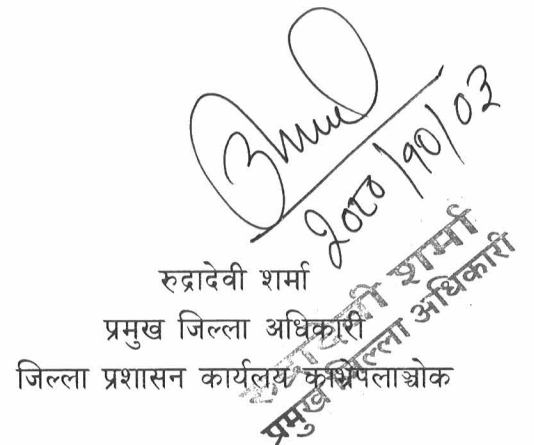 २०८०/१०/०३
रुद्रादेवी शर्मा
प्रमुख जिल्ला अधिकारी
जिल्ला प्रशासन कार्यलय काभ्रेपलाञ्चोक
रुद्रादेवी शर्मा
प्रमुख जिल्ला अधिकारी